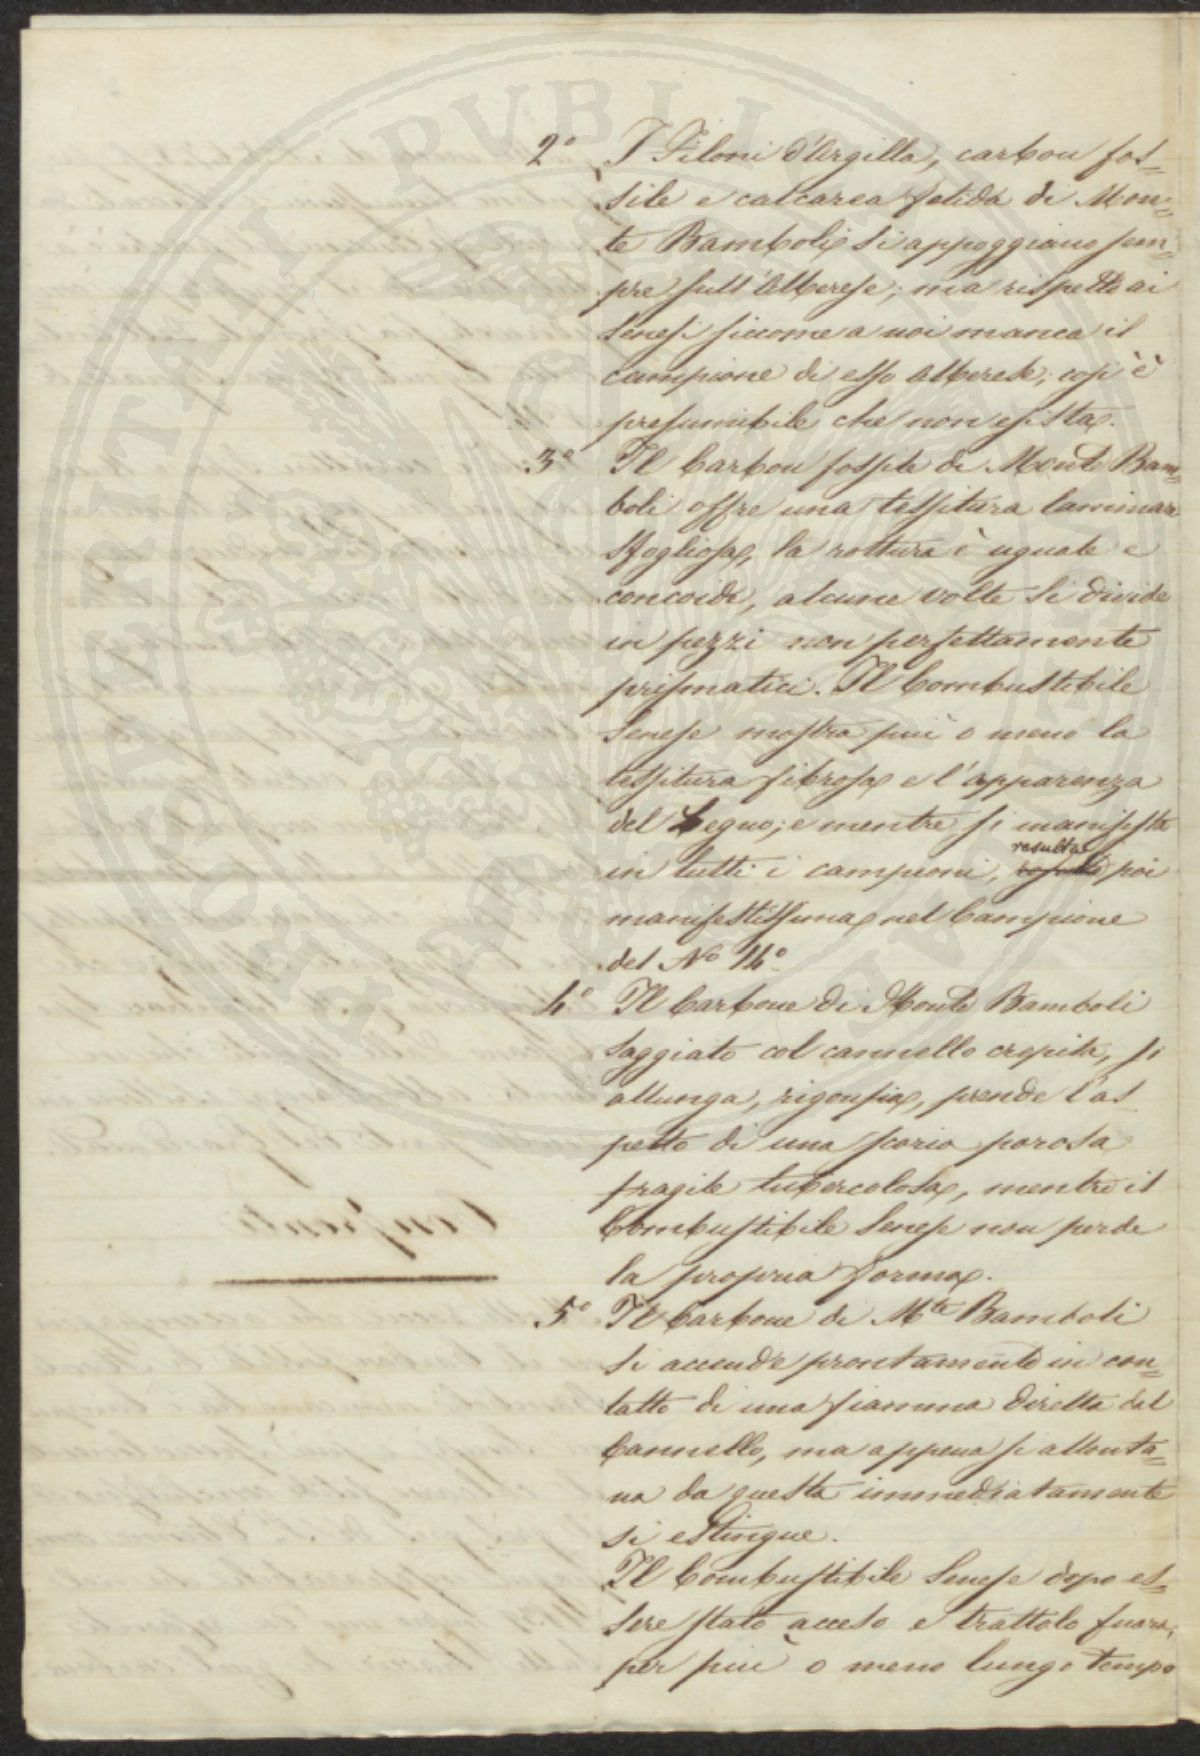 2° I Filoni d'Argilla, carbon fos=
sile e calcarea fetida di Mon=
te Bamboli si appoggiano sem=
pre sull'Alberese; ma rispetto ai
Senesi siccome a noi manca il
campione di esso alberese, così è
presumibile che non esista.
3° Il Carbon fossile di Monte Bam=
boli offre una tessitura laminare
sfogliosa, la rottura è uguale e
concoide, alcune volte si divide
in pezzi non perfettamente
prismatici. Il Combustibile
Senese mostra più o meno la
tessitura fibrosa e l'apparenza
del Legno; e mentre si manifesta
resulta
in tutti i campioni, poi
manifestissima nel Campione
del N° 14°
4° Il Carbone di Monte Bamboli
saggiato col cannello crepita, si
allunga, rigonfia, prende l'as
petto di una scoria porosa
fragile tubercolosa, mentre il
Combustibile Senese non perde
la propria forma.
5° Il Carbone di M.te Bamboli
si accende prontamente in con=
tatto di una fiamma diretta dal
Cannello, ma appena si allonta=
na da questa immediatamente
si estingue.
Il Combustibile Senese dopo es=
sere stato acceso e trattolo fuora,
per più o meno lungo tempo
PROSPERITATI PUBLICAE